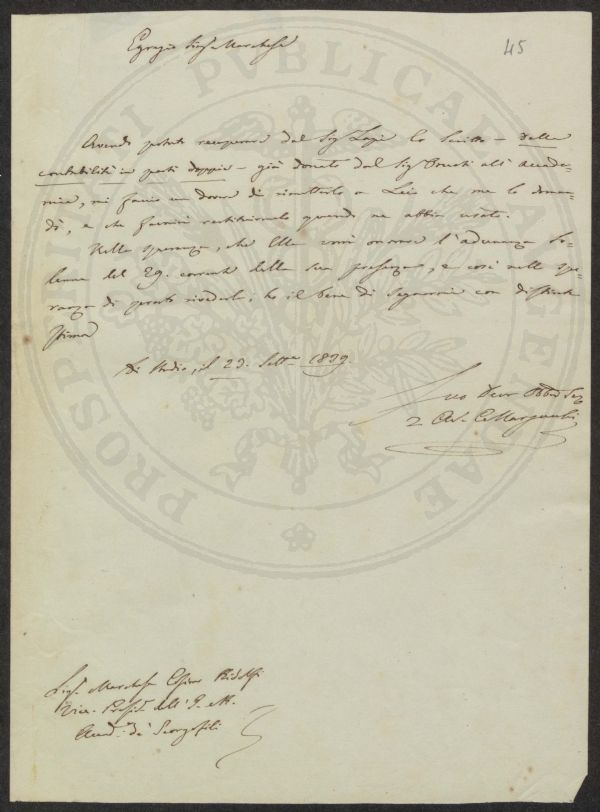 45
Egregio Sigr Marchese
Avendo potuto recuperare dal Sigr Lapi lo Scritto – della
contabilità in parti doppie – già donato dal Sigr all' Accade-
mia, mi faccio un dovere di rimetterlo a Lei che me lo doman-
dò, e che favorirà restituirmelo quando ne abbia usato.
Nella speranza, che Ella vorrà onorare l'adunanza So-
lenne del 29. corrente della sua presenza, e così nella spe-
ranza di presto rivederla; ho il bene di segnarmi con distinta
stima
Di Studio, il 23. Sett.e 1839.
Suo Devr Obbd Ser
Sigr Marchese Cosimo Ridolfi
Vice. Presid. dell' I. e R.
Accad. de' Georgofili
PROSPERITATI PVBLICAE AVGENDAE